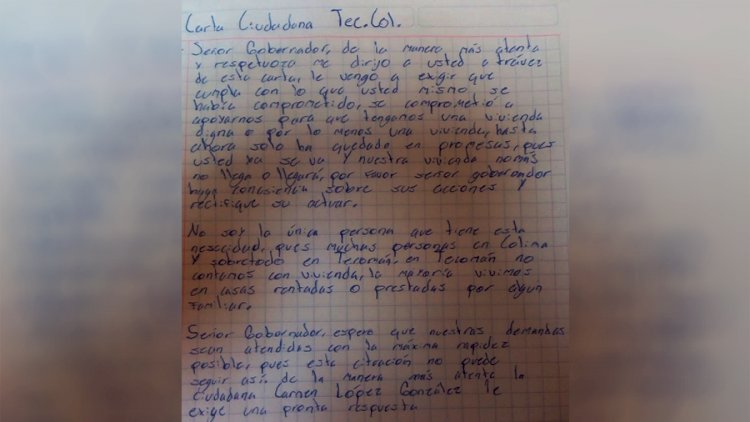 Carta Ciudadana Tec. Col.
Señor Gobernador, de la manera más atenta
y respetuoza me dirijo a usted a trávez
de esta carta, le vengo a exigir que
cumpla con lo que usted mismo, se
había comprometido, se comprometió a
apoyarnos para que tengamos una vivienda
digna o por lo menos una vivienda, hasta
ahora solo ha quedado en promesas, pues
usted ya se va y nuestra vivienda nomás
no llega o llegará, por favor señor goberandor
haga consiencia sobre sus acciones y
rectifique su actuar.
No soy la única persona que tiene esta
nesecidad, pues muchas personas en Colima
y sobretodo en Tecomán, en Tecomán no
contamos con vivienda, la mayoría vivimos
en casas rentadas o prestadas por algun
familiar.
Señor Gobernador, espero que nuestras demandas
sean atendidas con la máxima rapidez
posible, pues esta citración no puede
seguir así, de la manera más atenta la
ciudadana Carmen López González le
exige una pronta respuesta